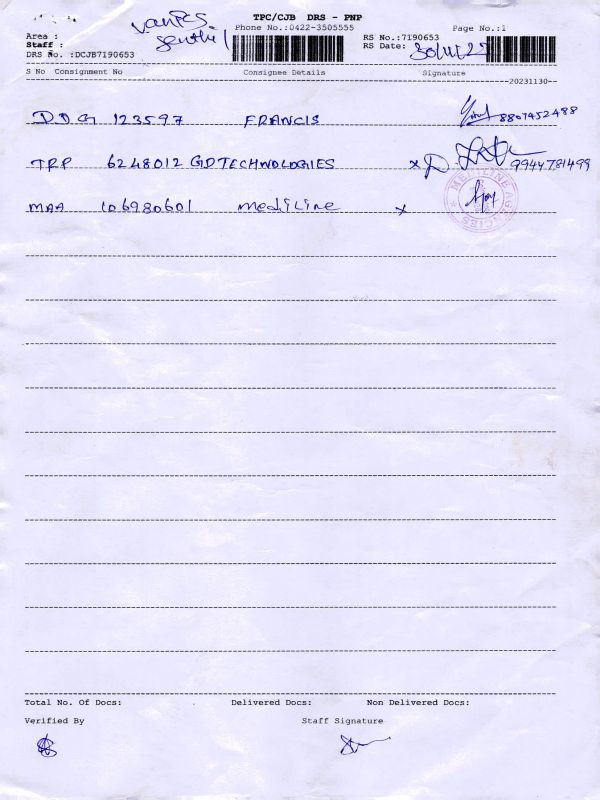 TPC/CJB DRS - PNP
Phone No.:0422-3505555 Page No.:1
Area :
Staff : Senthil
DRS No. :DCJB7190653
RS No.:7190653
RS Date: 30/11/23
S No Consignment No Consignee Details Signature
20231130
DDG 123597 FRANCIS 8807452488
TRP 6248012 GD TECHNOLOGIES x 9944781499
MAA 106980601 mediline x
MEDILINE AGENCIES
Total No. Of Docs: Delivered Docs: Non Delivered Docs:
Verified By Staff Signature